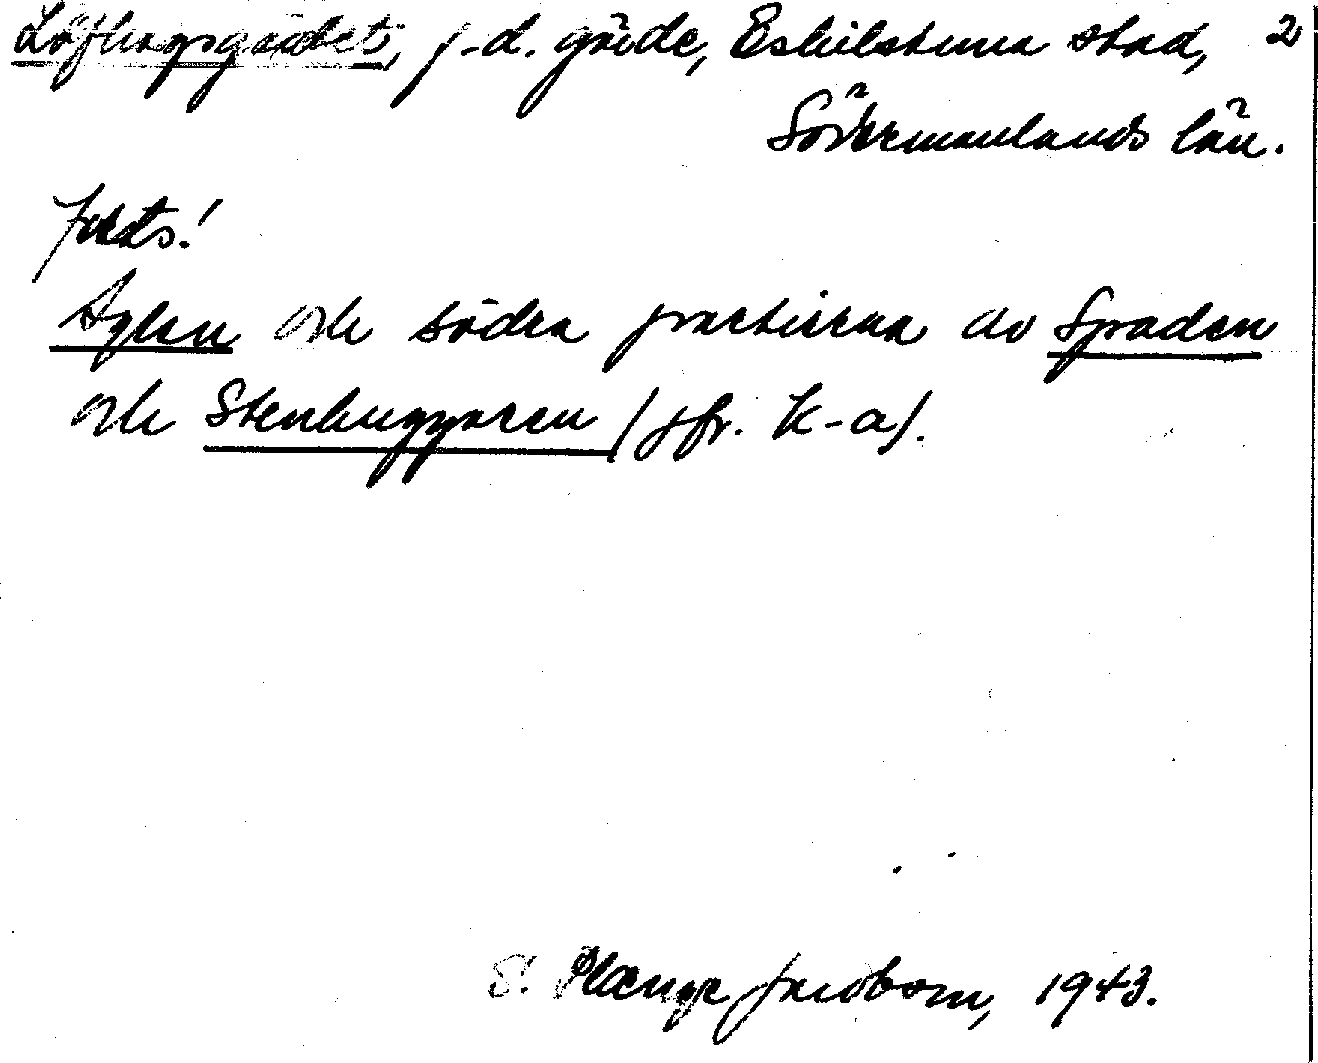 Löfhagsgärdet, f.d. gärde, Eskilstuna stad, 2
Södermanlands län.
Forts!
och södra partierna av Spaden
och Stenhuggaren (jfr. K-a).
S. Plænge Jacobson, 1943.